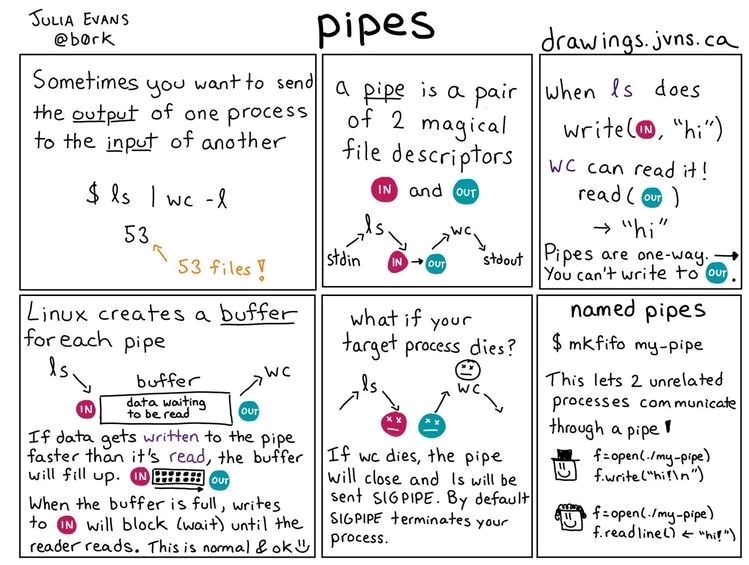 JULIA EVANS
@b0rk
pipes
drawings.jvns.ca
Sometimes you want to send
the output of one process
to the input of another
$ ls | wc -l
53
53 files!
a pipe is a pair
of 2 magical
file descriptors
IN and OUT
ls
wc
stdin
IN
OUT
stdout
when ls does
write(IN, "hi")
wc can read it!
read(OUT)
→ "hi"
Pipes are one-way. →
You can't write to OUT.
Linux creates a buffer
for each pipe
ls
buffer
wc
IN
data waiting
to be read
OUT
If data gets written to the pipe
faster than it's read, the buffer
will fill up. IN OUT
When the buffer is full, writes
to IN will block (wait) until the
reader reads. This is normal & ok
what if your
target process dies?
ls
wc
If wc dies, the pipe
will close and ls will be
sent SIGPIPE. By default
SIGPIPE terminates your
process.
named pipes
$ mkfifo my-pipe
This lets 2 unrelated
processes communicate
through a pipe!
f=open(./my-pipe)
f.write("hi!\n")
f=open(./my-pipe)
f.readline() ← "hi!")